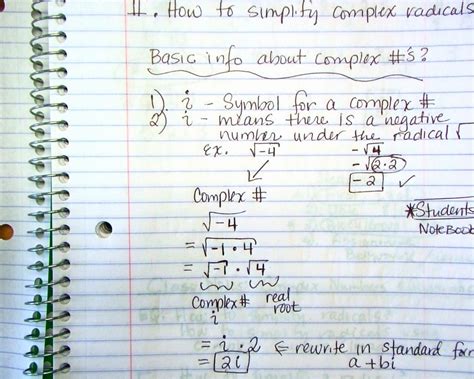 II. How to simplify complex radicals
Basic info about complex #'s?
1) i - Symbol for a complex #
2) i - means there is a negative
number under the radical √
Ex. √-4
-√4
-√(2·2)
-2 ✓
Complex #
√-4
= √-1·4
= √-1 · √4
Complex# real
i root
= i · 2 ← rewrite in standard for
= 2i a+bi
*Students
NoteBook